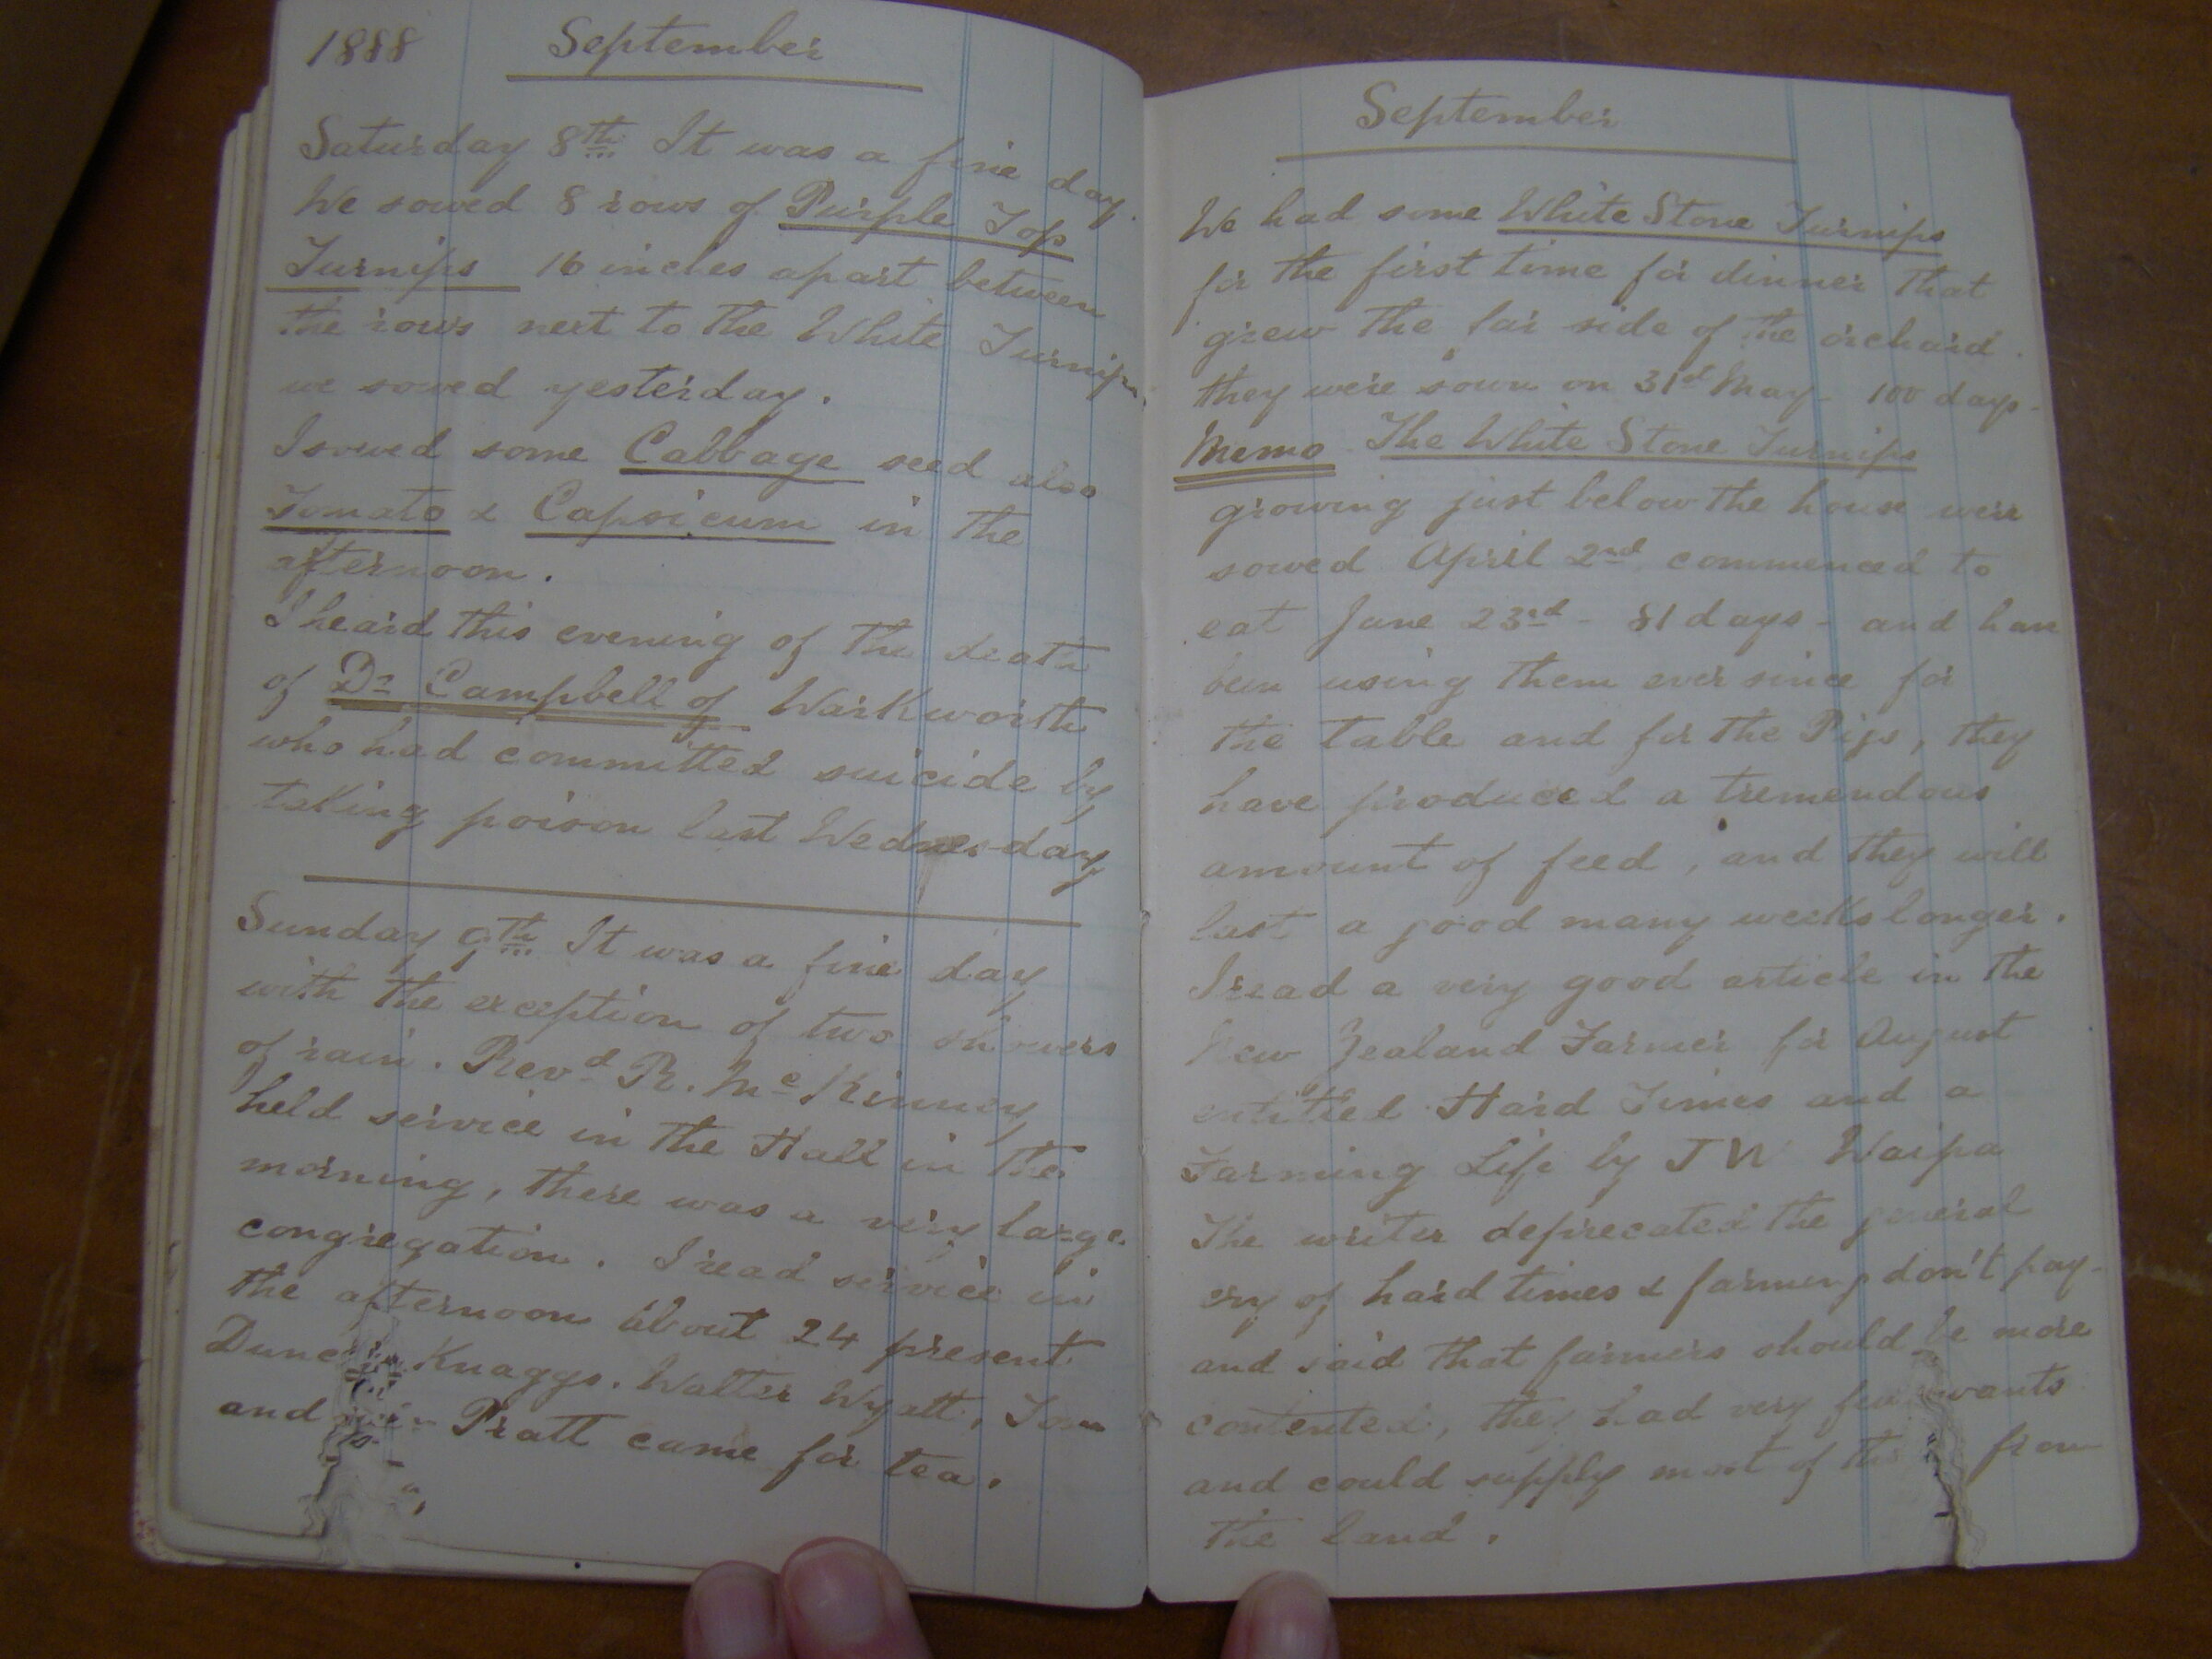 1888 September
Saturday 8th It was a fine day.
We sowed 8 rows of Purple Top
Turnips 16 inches apart between
the rows next to the White Turnips
we sowed yesterday.
I sowed some Cabbage seed also
Tomato & Capsicum in the
afternoon.
I heard this evening of the death
of Dr Campbell of Warkworth
who had committed suicide by
taking poison last Wednesday
Sunday 9th It was a fine day
with the exception of two showers
of rain. Revd R. Mc Kinney
held service in the Hall in the
morning, there was a very large
congregation. I read service in
the afternoon about 24 present.
Knaggs. Walter Wyatt, Tom
and Pratt came for tea.
September
We had some White Stone Turnips
for the first time for dinner that
grew the far side of the orchard.
they were sown on 31st May - 100 days -
Memo The White Stone Turnips
growing just below the house were
sowed April 2nd commenced to
eat June 23rd - 81 days - and have
been using them ever since for
the table and for the Pigs, they
have produced a tremendous
amount of feed, and they will
last a good many weeks longer.
I read a very good article in the
New Zealand Farmer for August
entitled Hard Times and a
Farming Life by J W Waipa
The writer deprecated the general
cry of hard times & farming don't pay -
and said that farmers should be more
contented, they had very few wants
and could supply most of from
the land.